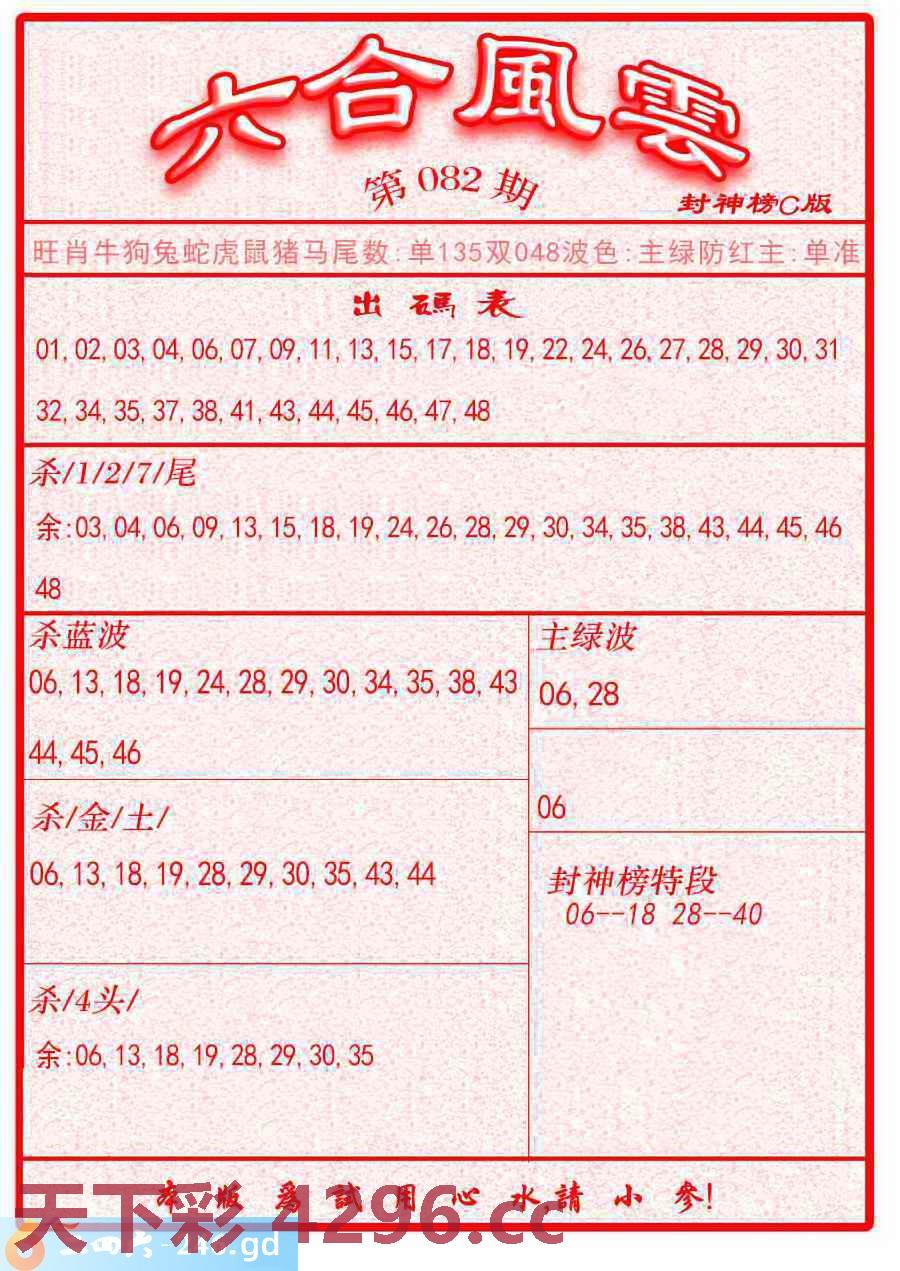 六合風雲
第082期
封神榜C版
旺肖牛狗兔蛇虎鼠猪马尾数:单135双048波色:主绿防红主:单准
出碼表
01,02,03,04,06,07,09,11,13,15,17,18,19,22,24,26,27,28,29,30,31
32,34,35,37,38,41,43,44,45,46,47,48
杀/1/2/7/尾
余:03,04,06,09,13,15,18,19,24,26,28,29,30,34,35,38,43,44,45,46
48
杀蓝波
06,13,18,19,24,28,29,30,34,35,38,43
44,45,46
主绿波
06,28
06
杀/金/土/
06,13,18,19,28,29,30,35,43,44
封神榜特段
06--18 28--40
杀/4头/
余:06,13,18,19,28,29,30,35
本版爲試用心水,請小參!
天下彩 4296.cc
二四六-246.gd